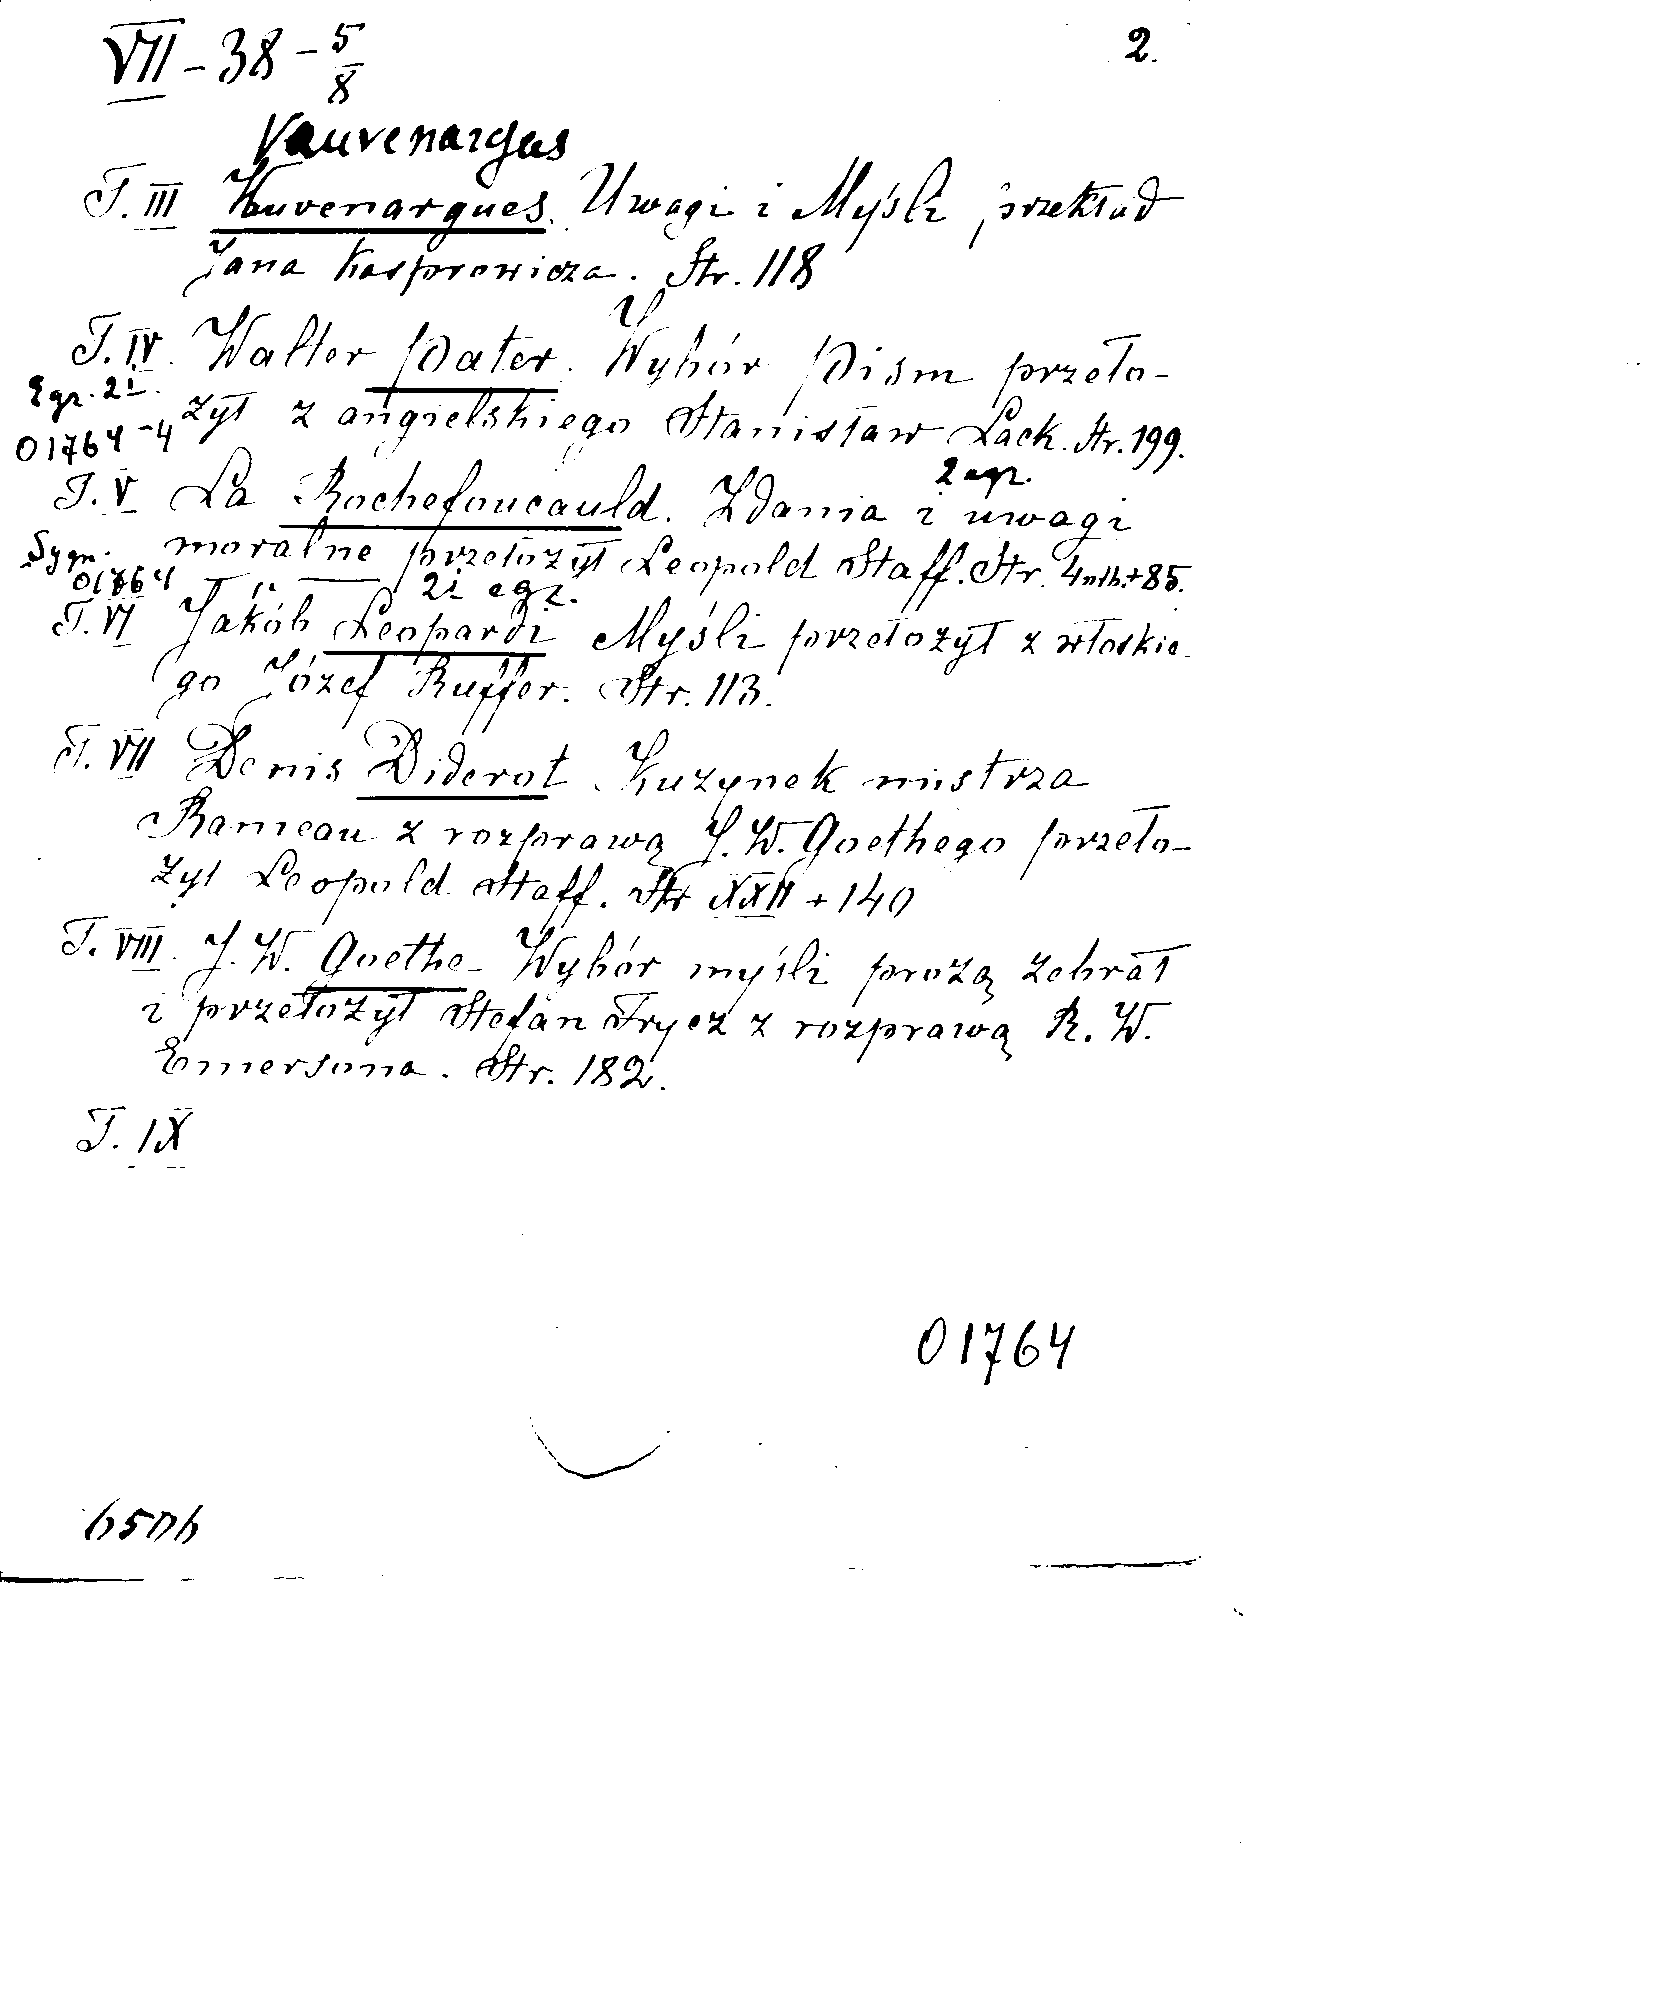 VII - 38 - 5/8
2.
Vauvenargues
T. III Vauvenargues. Uwagi i Myśli, przekład
Jana Kasprowicza. Str. 118
T. IV. Walter Pater. Wybór Pism przeło-
Egr. 2i.
żył z angielskiego Stanisław Lack. Str. 199.
01764-4
2 egz.
T. V La Rochefoucauld. Zdania i uwagi
moralne przełożył Leopold Staff. Str. 4nlb.+85.
Sygn.
01764
2i egz.
T. VI Jakób Leopardi Myśli przełożył z włoskie-
go Józef Ruffer. Str. 113.
T. VII Denis Diderot Kuzynek mistrza
Rameau z rozprawą J. W. Goethego przeło-
żył Leopold Staff. Str XXII + 140
T. VIII. J. W. Goethe - Wybór myśli prozą zebrał
i przełożył Stefan Frycz z rozprawą R. W.
Emersona. Str. 182.
T. IX
01764